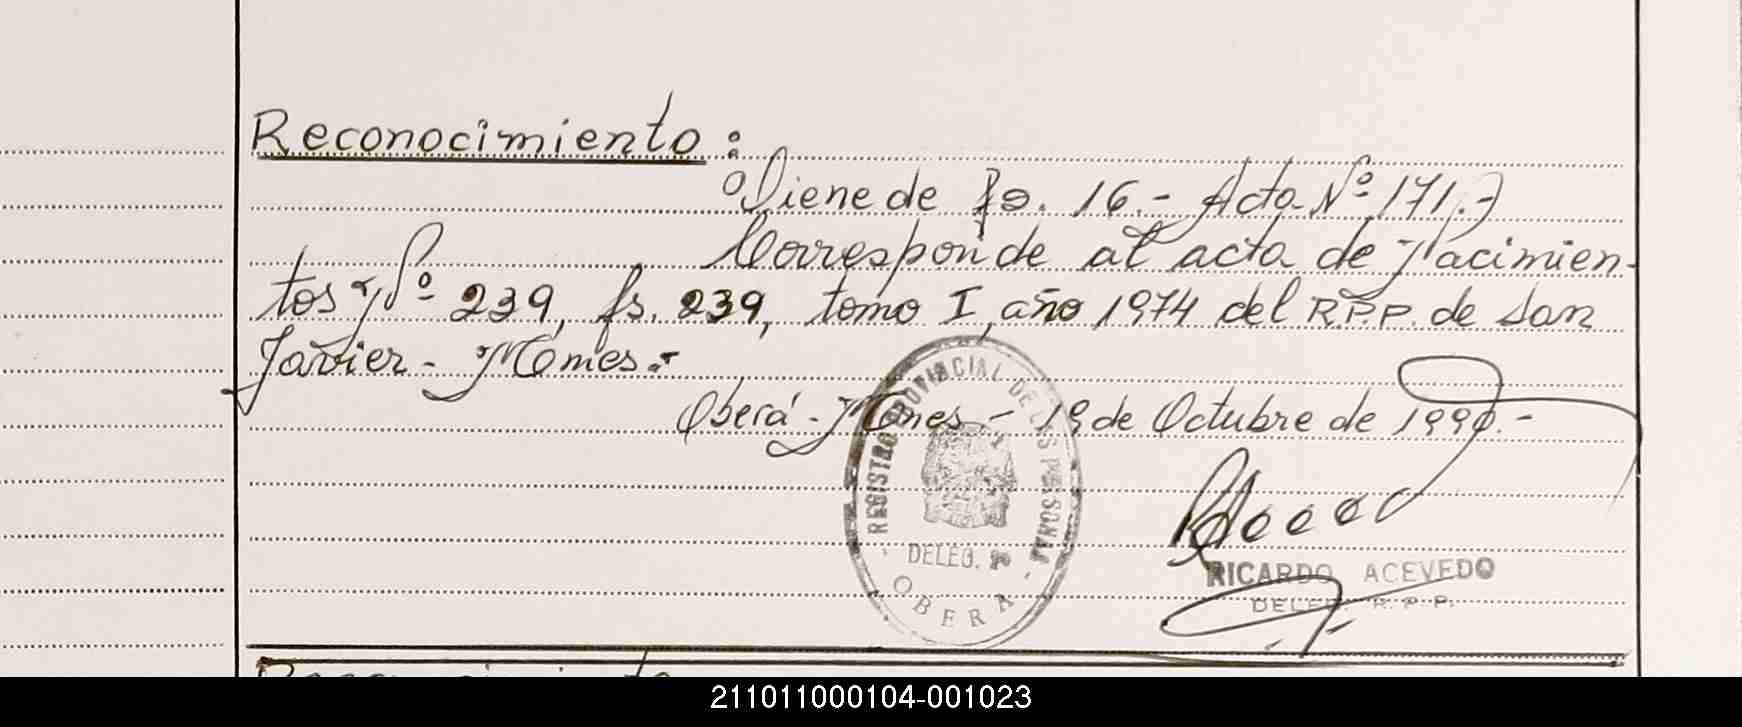 Reconocimiento:
Viene de fo. 16.- Acta Nº 171.-
Corresponde al acta de Nacimien-
tos Nº 239, fs. 239, tomo I, año 1974 del R.P.P. de San
Javier - Mnes.-
Oberá - Mnes - 19 de Octubre de 1990.-
REGISTRO PROVINCIAL DE LAS PERSONAS
DELEG.
OBERA
RICARDO ACEVEDO
DELEG. R.P.P.
Reconocimiento
211011000104-001023